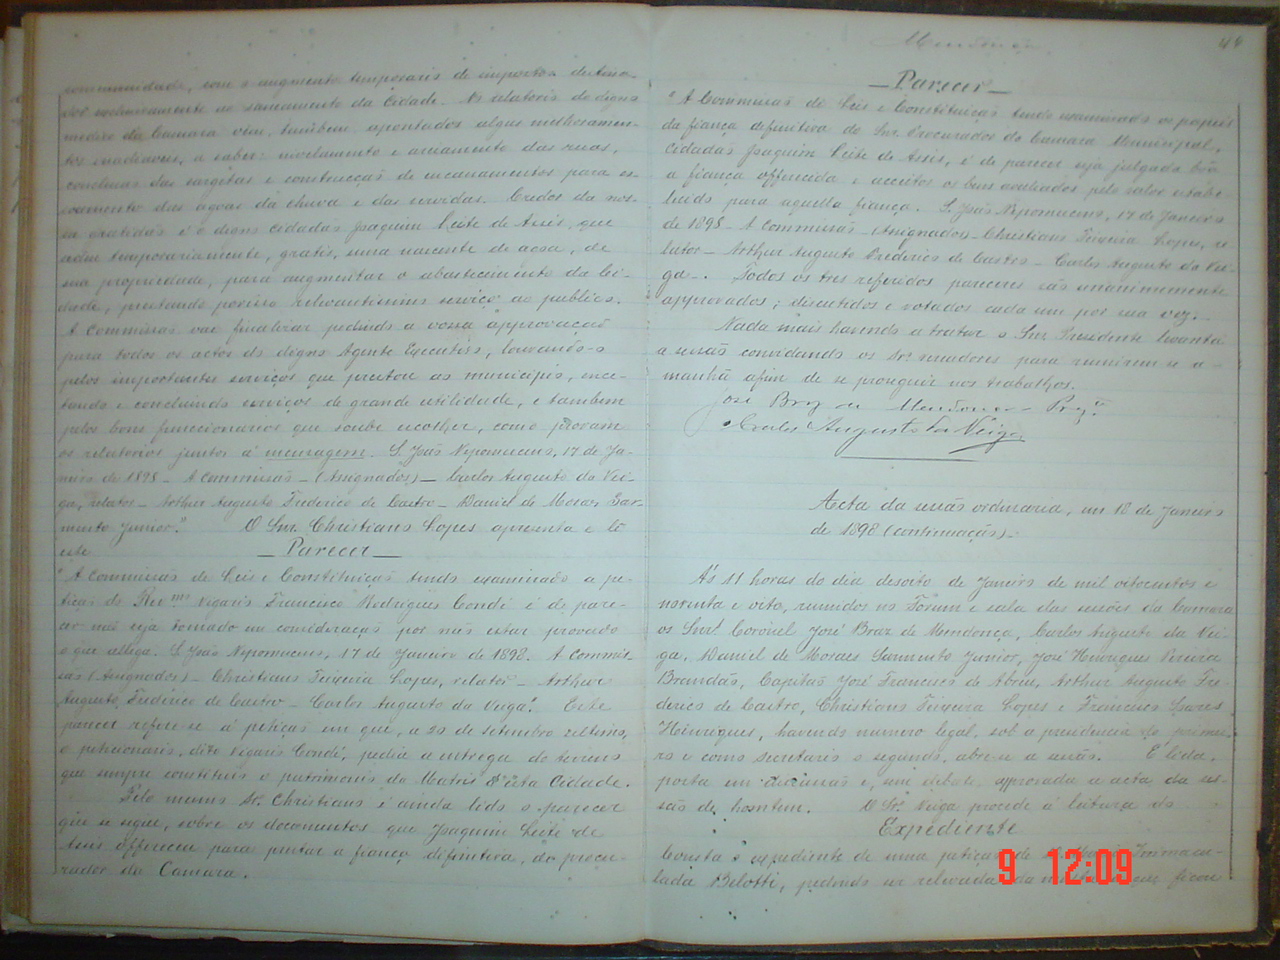 communidade, com o augmento temporario de impostos destina-
dos exclusivamente ao saneamento da Cidade. No relatorio do digno
medico da Camara vêm, tambem apontados alguns melhoramen-
tos inadiaveis, a saber: nivelamento e areiamento das ruas,
conclusão das sargetas e construcção de encanamentos para es-
coamento das agoas da chuva e das servidas. Credor da nos-
sa gratidão é o digno cidadão Joaquim Leite de Assis, que
cedeu temporariamente, gratis, uma nascente de agoa, de
sua propriedade, para augmentar o abastecimento da Ci-
dade, prestando por isso relevantissimo serviço ao publico.
A Commissão vae finalizar pedindo a vossa approvação
para todos os actos do digno Agente Executivo, louvando-o
pelos importantes serviços que prestou ao municipio, ence-
tando e concluindo serviços de grande utilidade, e tambem
pelos bons funccionarios que soube escolher, como provam
os relatorios juntos á mensagem. S. João Nepomuceno, 17 de Ja-
neiro de 1898 - A Commissão - (Assignados) - Carlos Augusto da Vei-
ga, relator - Arthur Augusto Frederico de Castro - Daniel de Moraes Sar-
mento Junior." O Snr. Christiano Lopes apresenta e lê
este
— Parecer —
"A Commissão de Leis e Constituição tendo examinado a pe-
tição do Revmo Vigario Francisco Rodrigues Condé é de pare-
cer não seja tomado em consideração por não estar provado
o que allega. S. João Nepomuceno, 17 de Janeiro de 1898. A Commis-
são (Assignados) - Christiano Teixeira Lopes, relator - Arthur
Augusto Frederico de Castro - Carlos Augusto da Veiga". Este
parecer refere-se á petição em que, a 20 de setembro ultimo,
o peticionario, dito Vigario Condé, pedia a entrega do terreno
que sempre constituiu o patrimonio da Matriz d'esta Cidade.
Pelo mesmo Sr. Christiano é ainda lido o parecer
que se segue, sobre os documentos que Joaquim Leite de
Assis offereceu para prestar a fiança definitiva, do procu-
rador da Camara.
Mendonça
44
— Parecer —
"A Commissão de Leis e Constituição tendo examinado os papeis
da fiança definitiva do Snr. Procurador da Camara Municipal,
cidadão Joaquim Leite de Assis, é de parecer seja julgada bôa
a fiança offerecida e acceitos os bens avaliados pelo valor estabe-
lecido para aquella fiança. S. João Nepomuceno, 17 de Janeiro
de 1898 - A Commissão (Assignados) - Christiano Teixeira Lopes, re-
lator - Arthur Augusto Frederico de Castro - Carlos Augusto da Vei-
ga -. Todos os tres referidos pareceres são unanimemente
approvados; discutidos e votados cada um por sua vez.
Nada mais havendo a tratar o Snr. Presidente levanta
a sessão convidando os Srs. vereadores para reunirem-se a-
manhã afim de se proseguir nos trabalhos.
José Braz de Mendonça - Prezte
Carlos Augusto da Veiga
Acta da sessão ordinaria, em 18 de Janeiro
de 1898 (continuação).
Ás 11 horas do dia desoito de Janeiro de mil oitocentos e
noventa e oito, reunidos no Fórum e sala das sessões da Camara
os Snrs. Coronel José Braz de Mendonça, Carlos Augusto da Vei-
ga, Daniel de Moraes Sarmento Junior, José Henriques Pereira
Brandão, Capitão José Francisco de Abreu, Arthur Augusto Fre-
derico de Castro, Christiano Teixeira Lopes e Francisco Soares
Henriques, havendo numero legal, sob a presidencia do primei-
ro e como secretario o segundo, abre-se a sessão. É lida,
posta em discussão e, sem debate, approvada a acta da ses-
são de hontem. O Sr. Veiga procede á leitura do
Expediente
Consta o expediente de uma petição de D. Maria Immacu-
lada Belotti, pedindo ser relevada da multa que ficou
9 12:09